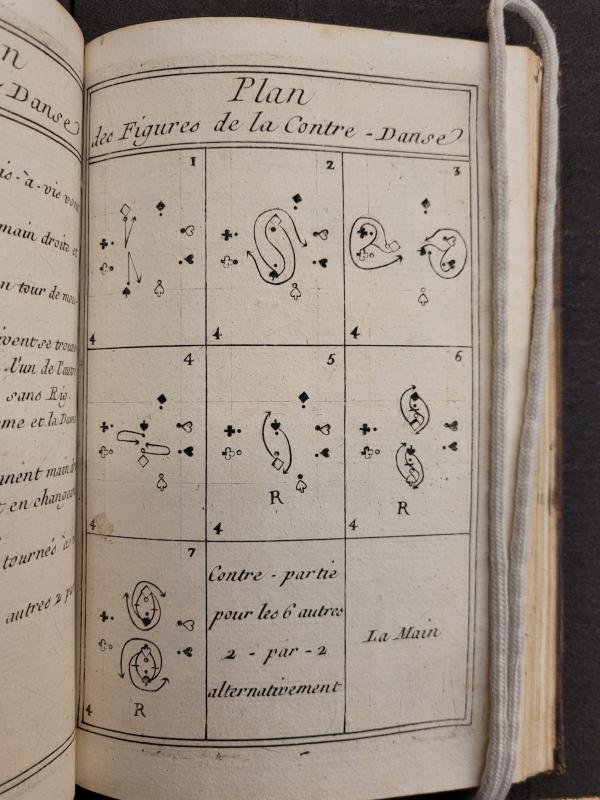 n
-Danse
is-à-vis vont
main droite et
n tour de mou-
ivent se trouve
l'un de l'autre
sans Rig.
me et la Dame
et en changeant
tournés
autres 2 par
Plan
des Figures de la Contre-Danse
1
4
2
4
3
4
4
4
5
R
4
6
R
4
7
R
4
Contre-partie
pour les 6 autres
2-par-2
alternativement
La Main